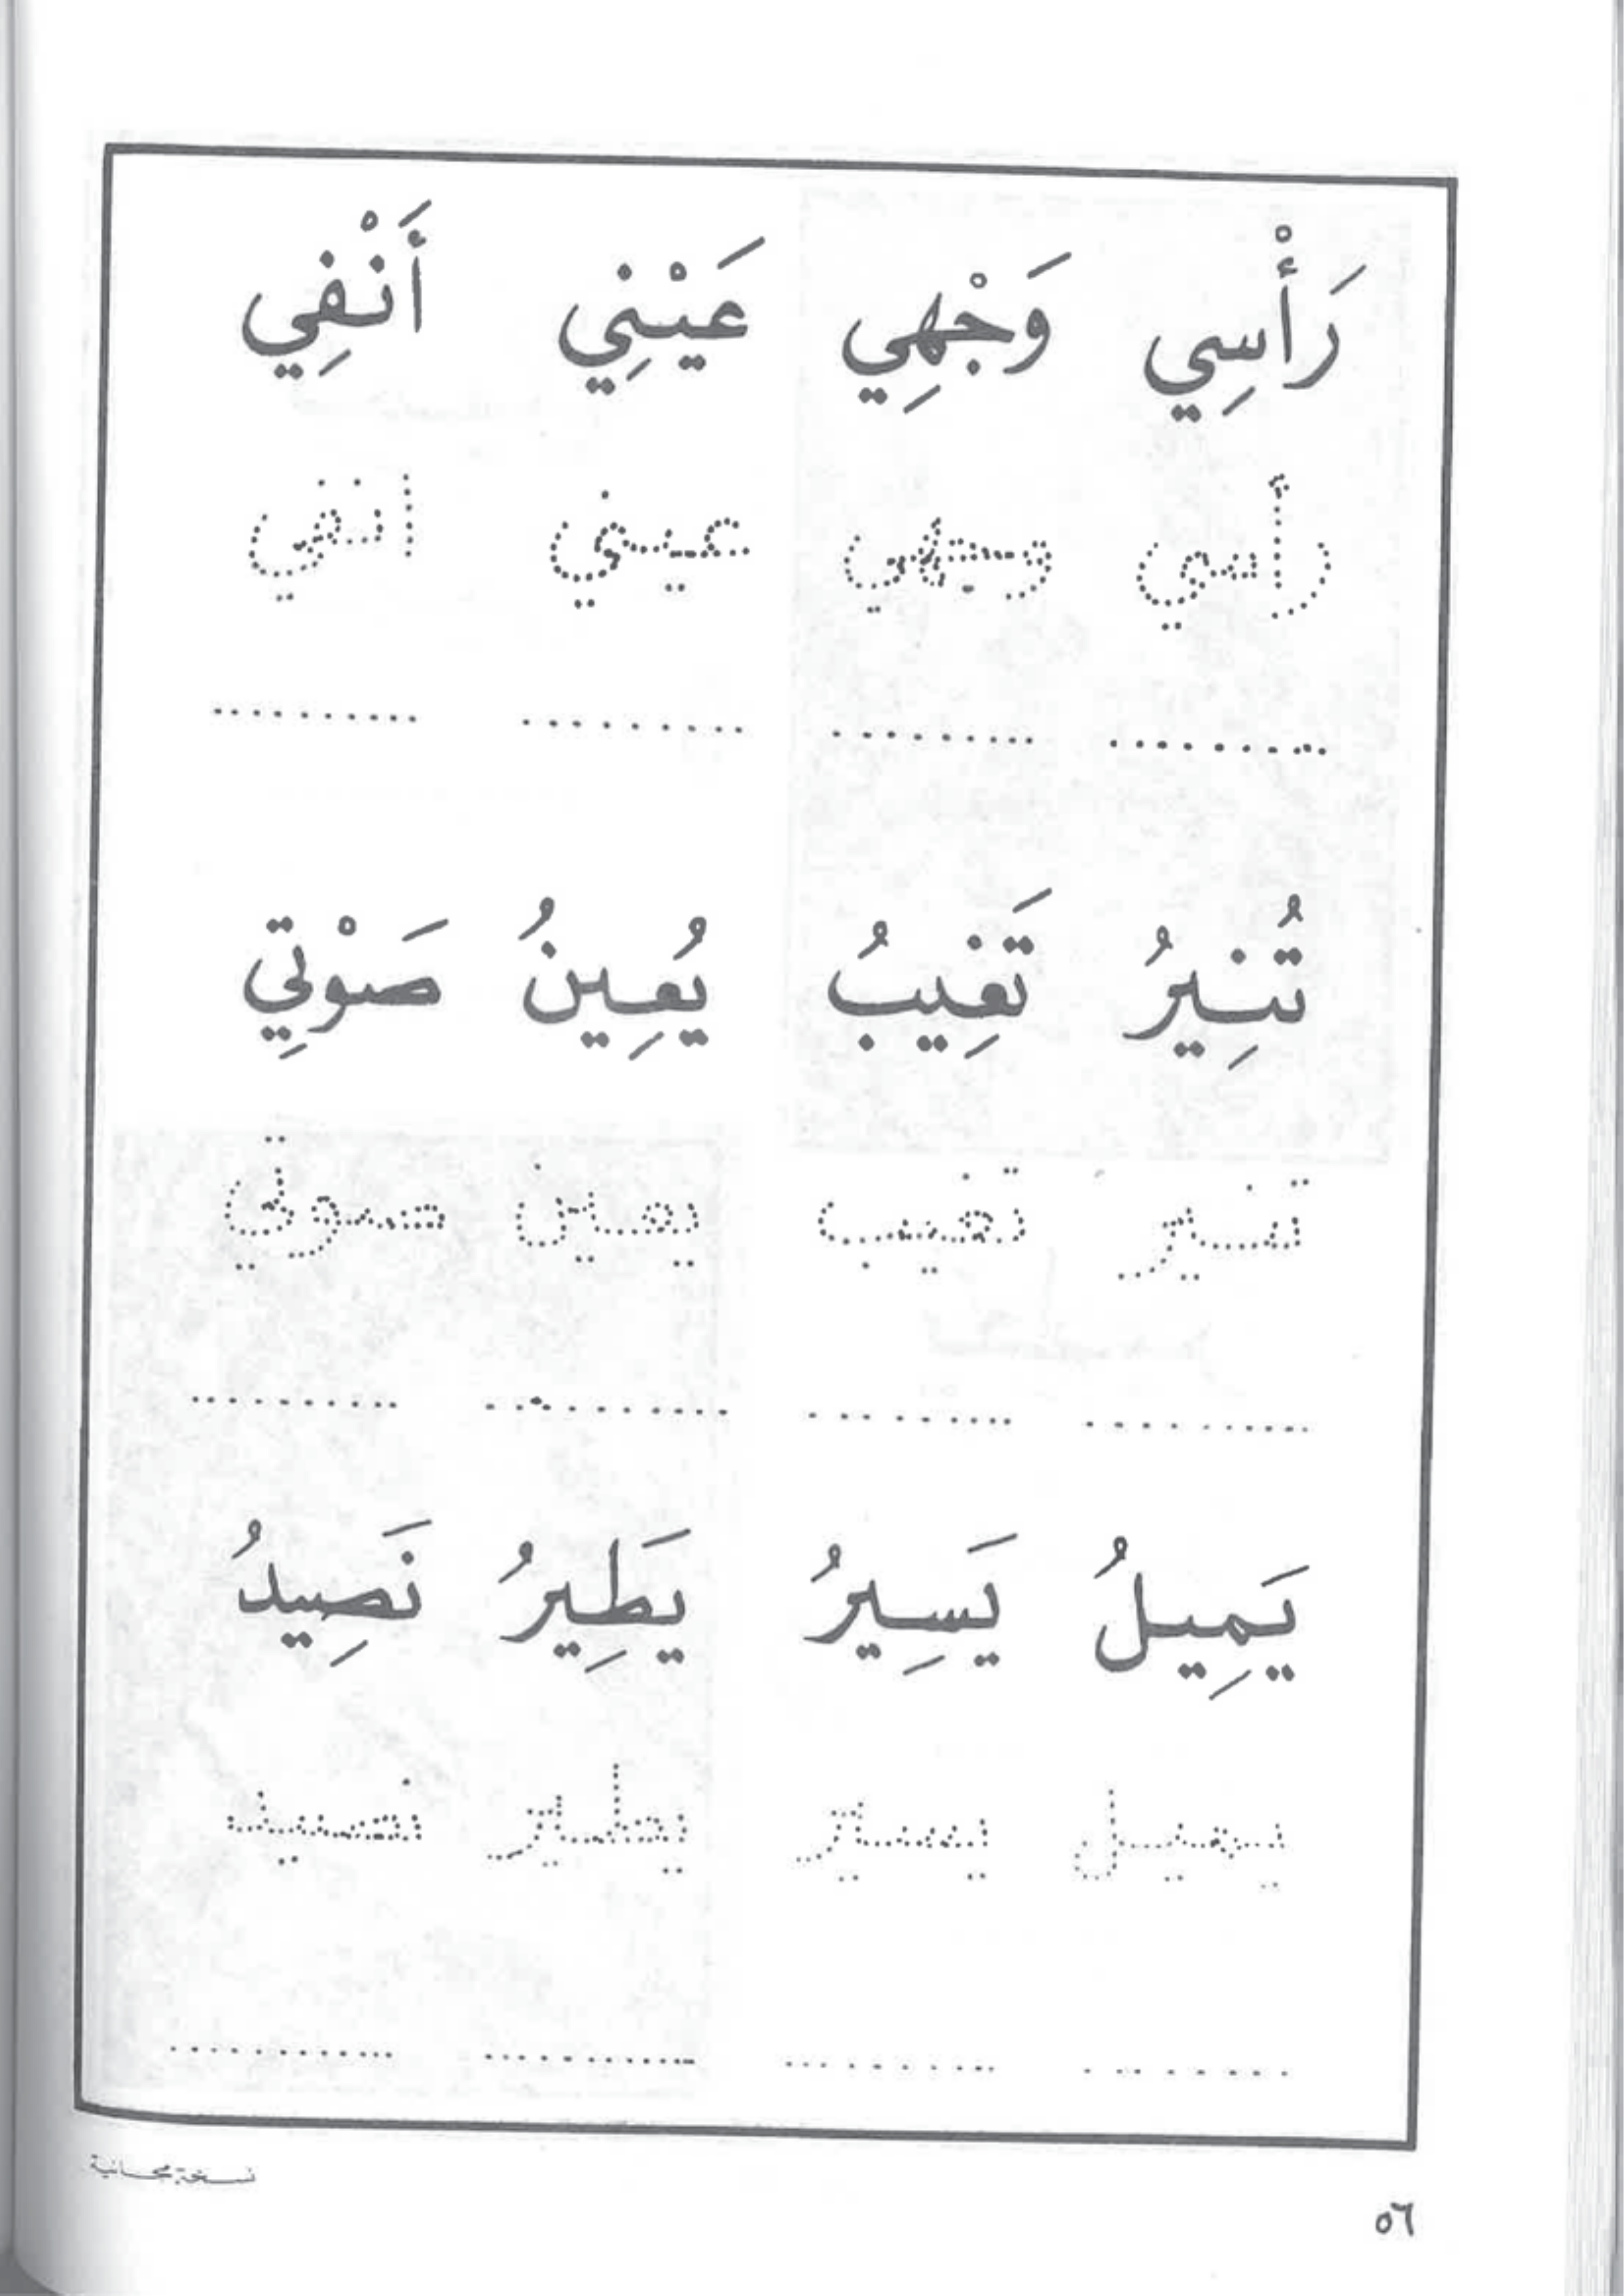 رَأْسِي وَجْهِي عَيْنِي أَنْفِي
رأسي وجهي عيني انفي
تُنِيرُ تَغِيبُ يُعِينُ صَوْتِي
تنير تغيب يعين صوتي
يَمِيلُ يَسِيرُ يَطِيرُ نَصِيدُ
يميل يسير يطير نصيد
نسخة مجانية
٥٦